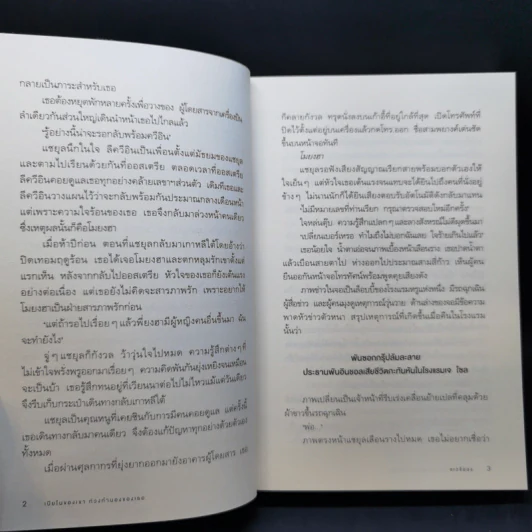 กลายเป็นภาระสำหรับเธอ
เธอต้องหยุดพักหลายครั้งเพื่อวางของ ผู้โดยสารจากเครื่องบิน
ลำเดียวกันส่วนใหญ่เดินนำหน้าเธอไปไกลแล้ว
'รู้อย่างนี้น่าจะรอกลับพร้อมควีอิน'
แชยุลนึกในใจ ลีควีอินเป็นเพื่อนตั้งแต่มัธยมของแชยุล
และตามไปเรียนด้วยกันที่ออสเตรีย ตลอดเวลาที่ออสเตรีย
ลีควีอินคอยดูแลเธอทุกอย่างคล้ายเลขาฯ ส่วนตัว เดิมทีเธอและ
ลีควีอินวางแผนไว้ว่าจะกลับพร้อมกันประมาณกลางเดือนหน้า
แต่เพราะความใจร้อนของเธอ เธอจึงกลับมาล่วงหน้าคนเดียว
ซึ่งเหตุผลนั้นก็คือโมยงฮา
เมื่อห้าปีก่อน ตอนที่แชยุลกลับมาเกาหลีใต้โดยอ้างว่า
ปิดเทอมฤดูร้อน เธอได้เจอโมยงฮาและตกหลุมรักเขาตั้งแต่
แรกเห็น หลังจากกลับไปออสเตรีย หัวใจของเธอก็ยังเต้นแบบ
อย่างต่อเนื่อง แต่เธอยังไม่คิดจะสารภาพรัก เพราะอยากให้
โมยงฮาเป็นฝ่ายสารภาพรักก่อน
'แต่ถ้ารอไปเรื่อยๆ แล้วพี่ยงฮามีผู้หญิงคนอื่นขึ้นมา ฉัน
จะทำยังไง'
จู่ๆ แชยุลก็กังวล ว้าวุ่นใจไปหมด ความรู้สึกต่างๆ ที่
ไม่เข้าใจพรั่งพรูออกมาเรื่อยๆ ความคิดพันกันยุ่งเหยิงจนเหมือน
จะเป็นบ้า เธอรู้สึกทนอยู่ที่เวียนนาต่อไปไม่ไหวแม้แต่วันเดียว
จึงรีบเก็บกระเป๋าเดินทางกลับเกาหลีใต้
แชยุลเป็นคุณหนูที่เคยชินกับการมีคนคอยดูแล แต่ครั้งนี้
เธอเดินทางกลับมาคนเดียว จึงต้องแก้ปัญหาทุกอย่างด้วยตัวเอง
ทั้งหมด
เมื่อผ่านศุลกากรที่ยุ่งยากออกมายังอาคารผู้โดยสาร เธอ
2
ก็คลายกังวล ทรุดนั่งลงบนเก้าอี้ที่อยู่ใกล้ที่สุด เปิดโทรศัพท์ที่
ปิดไว้ตั้งแต่อยู่บนเครื่องแล้วกดโทร.ออก ชื่อสามพยางค์เด่นชัด
ขึ้นบนหน้าจอทันที
โมยงฮา
แชยุลรอฟังเสียงสัญญาณเรียกสายพร้อมบอกตัวเองให้
ใจเย็นๆ แต่หัวใจเธอเต้นแรงจนแทบจะได้ยินไปถึงคนที่นั่งอยู่
ข้างๆ ไม่นานนักก็ได้ยินเสียงตอบรับอัตโนมัติดังกลับมาแทน
'ไม่มีหมายเลขที่ท่านเรียก กรุณาตรวจสอบใหม่อีกครั้ง'
ใจหล่นตุ้บ ความรู้สึกแปลกๆ และลางสังหรณ์ไม่ดีผุดขึ้นมา
'เปลี่ยนเบอร์เหรอ ทำไมถึงไม่บอกฉันเลย ใจร้ายเกินไปแล้ว'
เธอน้อยใจ น้ำตาเอ่อจนภาพเบื้องหน้าเลือนราง เธอปาดน้ำตา
แล้วเบือนสายตาไป ห่างออกไปประมาณสามสี่ก้าว เห็นผู้คน
ยืนออกันหน้าจอโทรทัศน์พร้อมพูดคุยเสียงดัง
ภาพข่าวในจอเป็นล็อบบี้ของโรงแรมหรูแห่งหนึ่ง มีรถฉุกเฉิน
ผู้สื่อข่าว และผู้คนมุงดูเหตุการณ์วุ่นวาย ด้านล่างของจอมีข้อความ
พาดหัวข่าวตัวหนา สรุปเหตุการณ์ที่เกิดขึ้นเมื่อคืนในโรงแรม
นั้นว่า
พันซอกกรุ๊ปล้มละลาย
ประธานพันอินซอลเสียชีวิตกะทันหันในโรงแรมเจ โซล
ภาพเปลี่ยนเป็นเจ้าหน้าที่รีบเร่งเคลื่อนย้ายเปลที่คลุมด้วย
ผ้าขาวขึ้นรถฉุกเฉิน
'พ่อ...'
ภาพตรงหน้าแชยุลเลือนรางไปหมด เธอไม่อยากเชื่อว่า
3